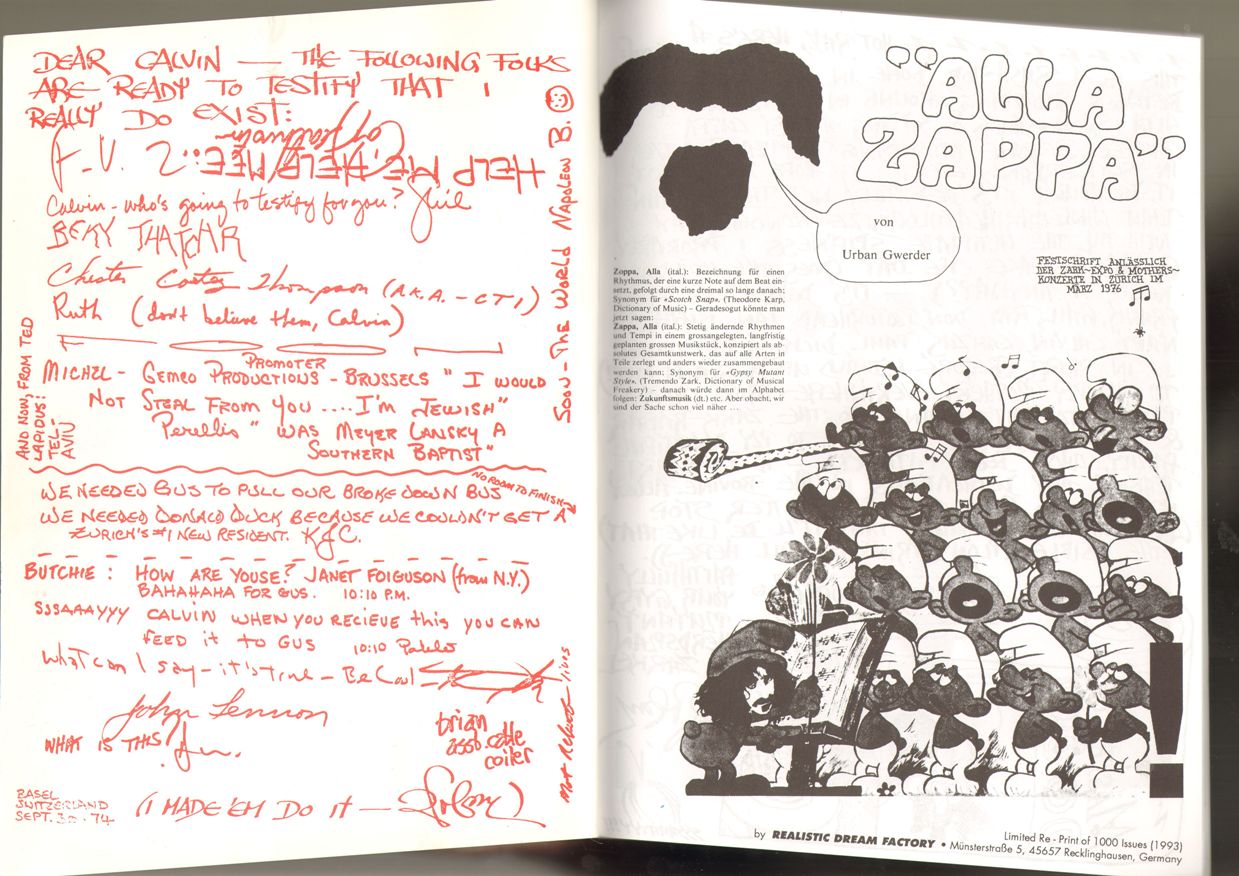 DEAR CALVIN — THE FOLLOWING FOLKS
ARE READY TO TESTIFY THAT I
REALLY DO EXIST:
HELP ME, HELP ME:
Calvin - who's going to testify for you?
BEKY THATCHAR
Chester Thompson (A.K.A. - CT1)
Ruth (don't believe them, Calvin)
MICHEL - GEMCO PRODUCTIONS - BRUSSELS " I WOULD
PROMOTER
NOT STEAL FROM YOU .... I'M JEWISH"
Perellis " WAS MEYER LANSKY A
SOUTHERN BAPTIST"
AND NOW, FROM TED
LAPIDUS:
TEL-
AVIV
SOON - THE WORLD NAPOLEON B.
NO ROOM TO FINISH
WE NEEDED GUS TO PULL OUR BROKE DOWN BUS
WE NEEDED DONALD DUCK BECAUSE WE COULDN'T GET A
ZURICH'S #1 NEW RESIDENT. KGC.
BUTCHIE : HOW ARE YOUSE? JANET FOIGUSON (from N.Y.)
BAHAHAHA FOR GUS. 10:10 P.M.
SSSAAAYYY CALVIN WHEN YOU RECIEVE this YOU CAN
FEED it to GUS 10:10 Pablo
What can I say - it's true - Be Cool
John Lennon
WHAT IS THIS!
brian
asst. cable
coiler
lives
BASEL
SWITZERLAND
SEPT. 30 · 74
(I MADE 'EM DO IT —
"ALLA
ZAPPA"
von
Urban Gwerder
FESTSCHRIFT ANLÄSSLICH
DER ZARK-EXPO & MOTHERS-
KONZERTE IN ZÜRICH IM
MÄRZ 1976
Zoppa, Alla (ital.): Bezeichnung für einen
Rhythmus, der eine kurze Note auf dem Beat ein-
setzt, gefolgt durch eine dreimal so lange danach;
Synonym für «Scotch Snap». (Theodore Karp,
Dictionary of Music) – Geradesogut könnte man
jetzt sagen:
Zappa, Alla (ital.): Stetig ändernde Rhythmen
und Tempi in einem grossangelegten, langfristig
geplanten grossen Musikstück, konzipiert als ab-
solutes Gesamtkunstwerk, das auf alle Arten in
Teile zerlegt und anders wieder zusammengebaut
werden kann; Synonym für «Gypsy Mutant
Style». (Tremendo Zark, Dictionary of Musical
Freakery) – danach würde dann im Alphabet
folgen: Zukunftsmusik (dt.) etc. Aber obacht, wir
sind der Sache schon viel näher ...
!
by REALISTIC DREAM FACTORY • Münsterstraße 5, 45657 Recklinghausen, Germany
Limited Re - Print of 1000 Issues (1993)